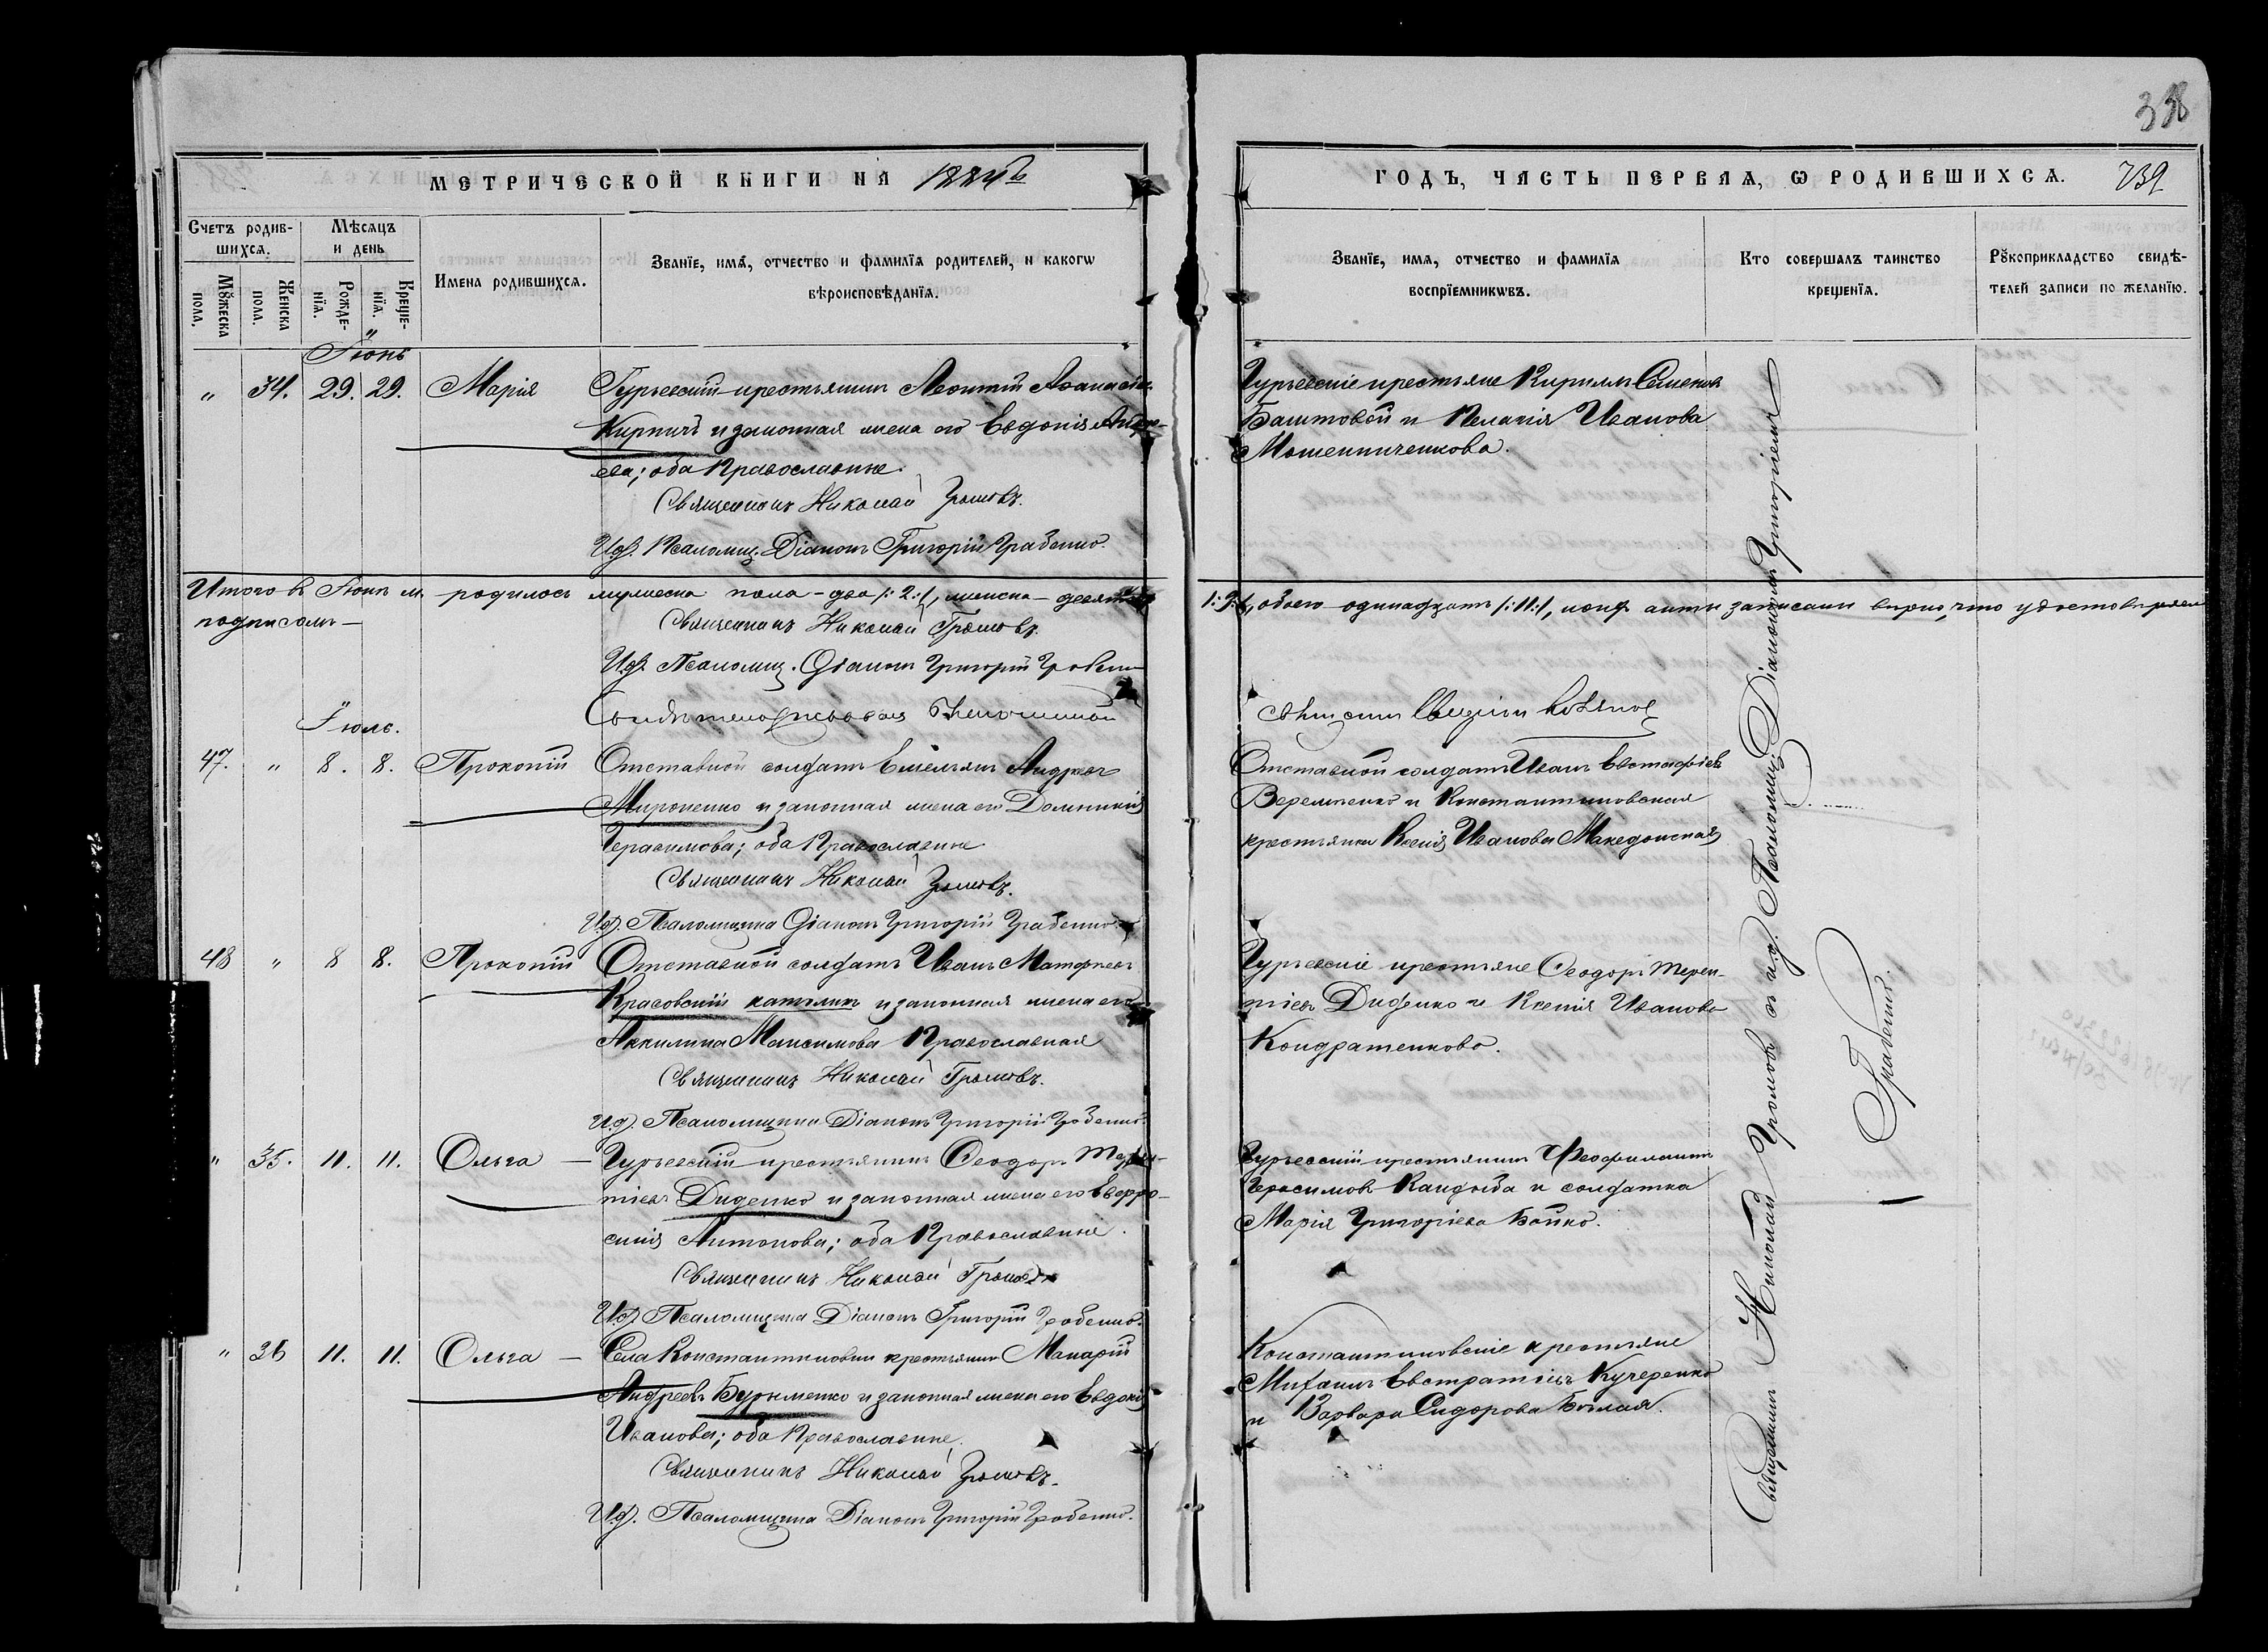 338
МЕТРИЧЕСКОЙ КНИГИ НА 1884й
ГОДЪ, ЧАСТЬ ПЕРВАЯ, Ѡ РОДИВШИХСѦ. 739
Счетъ родив-
шихсѧ.
Мѣсѧцъ
и день
Мꙋжеска пола.
Женска пола.
Рожде-
нїѧ.
Креще-
нїѧ.
Имена родившихсѧ.
Званїе, имѧ, отчество и фамилїѧ родителей, и какогѡ
вѣроисповѣданїѧ.
Званїе, имѧ, отчество и фамилїѧ
воспрїемникѡвъ.
Кто совершалъ таинство
крещенїѧ.
Рꙋкоприкладство свидѣ-
телей записи по желанїю.
Іюнь
" 34. 29. 29. Марія Гурьевскій крестьянинъ Леонтій Аѳанасіевъ
Кирпичъ и законная жена его Евдокія Андре-
ева; оба Православные.
Священникъ Николай Громовъ.
И.д. Псаломщ. Діаконъ Григорій Грабенко.
Гурьевскіе крестьяне Кириллъ Семеновъ
Баштовой и Пелагія Иванова
Мошенниченкова.
Итого въ Іюнѣ м. родилось мужеска пола - два /:2:/, женска - девять
/:9:/, обоего одинадцать /:11:/, акты записаны вѣрно, что удостовѣряемъ
подписомъ —
Священникъ Николай Громовъ.
И.д. Псаломщ. Діаконъ Григорій Грабенко
Свидѣтельствовалъ Благочинный
Священникъ
Іюль.
47. " 8. 8. Прокопій Отставной солдатъ Емельянъ Андреевъ
Мироненко и законная жена его Домникія
Герасимова; оба Православные
Священникъ Николай Громовъ.
И.д. Псаломщика Діаконъ Григорій Грабенко
Отставной солдатъ Иванъ Евстафіевъ
Веремѣенко и Константиновская
крестьянка Ксенія Иванова Македонская
48 " 8 8. Прокопій Отставной солдатъ Иванъ Матфеевъ
Красовскій католикъ и законная жена его
Акилина Максимова Православная
Священникъ Николай Громовъ.
И.д. Псаломщика Діаконъ Григорій Грабенко.
Гурьевскіе крестьяне Ѳеодоръ Терен-
тіевъ Диденко и Ксенія Иванова
Кондратенкова.
" 35. 11. 11. Ольга — Гурьевскій крестьянинъ Ѳеодоръ Терен-
тіевъ Диденко и законная жена его Евфро-
синія Антонова; оба Православные.
Священникъ Николай Громовъ
И.д. Псаломщика Діаконъ Григорій Грабенко.
Гурьевскій крестьянинъ Феофилактъ
Герасимовъ Кандыба и солдатка
Марія Григоріева Бойко.
" 36 11. 11. Ольга — Села Константиновки крестьянинъ Макарій
Андреевъ Бурыменко и законная жена его Евдокія
Иванова; оба Православные.
Священникъ Николай Громовъ.
И.д. Псаломщика Діаконъ Григорій Грабенко.
Константиновскіе крестьяне
Михаилъ Евстратіевъ Кучеренко
и Варвара Сидорова Бѣлая.
Священникъ Николай Громовъ съ и.д. Псаломщ. Діакономъ Григоріемъ
Грабенко.